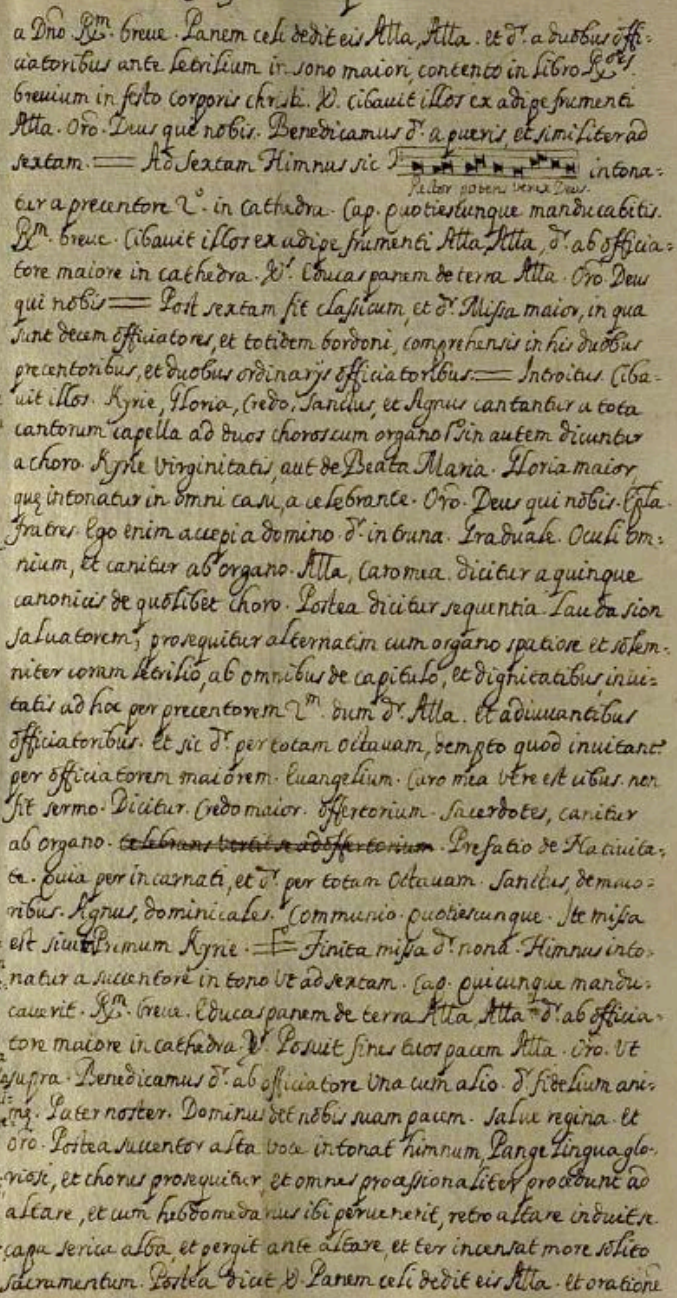 a Dño. ℟m. breue. Panem celi dedit eis Alla, Alla. et dr. a duobus offi=
ciatoribus ante letrilium in sono maiori, contento in libro ℟oes.
breuium in festo corporis christi. ℣. Cibauit illos ex adipe frumenti
Alla. Oro. Deus que nobis. Benedicamus dr. a pueris, et similiter ad
sextam. == Ad Sextam Himnus sic
Rector potens verax Deus.
intona=
tur a precentore 2o. in cathedra. Cap. Quotiescunque manducabitis.
℟m. breue. Cibauit illos ex adipe frumenti Alla, Alla, dr. ab officia=
tore maiore in cathedra. ℣. Educas panem de terra Alla. Oro. Deus
qui nobis == Post sextam fit classicum, et dr. Missa maior, in qua
sunt decem officiatores, et totidem bordoni, comprehensis in his duobus
precentoribus, et duobus ordinarijs officiatoribus. == Introitus. Ciba=
uit illos. Kyrie, Gloria, Credo, Sanctus, et Agnus cantantur a tota
cantorum capella ad duos choros cum organo sin autem dicuntur
a choro. Kyrie Virginitatis, aut de Beata Maria. Gloria maior,
quę intonatur in omni casu, a celebrante. Oro. Deus qui nobis. Epla.
fratres. Ego enim accepi a domino. dr. in truna. Graduale. Oculi om=
nium, et canitur ab organo. Alla, Caro mea. dicitur a quinque
canonicis de quolibet choro. Postea dicitur sequentia. Lauda sion
saluatorem, prosequitur alternatim cum organo spatiose et solem=
niter coram letrilio, ab omnibus de capitulo, et dignitatibus, inui=
tatis ad hoc per precentorem 2m. dum dr. Alla. et adiuuantibus
officiatoribus. Et sic dr. per totam octauam, dempto quod inuitantr
per officiatorem maiorem. Euangelium. Caro mea vere est cibus. non
fit sermo. Dicitur. Credo maior. Offertorium. Sacerdotes, canitur
ab organo. celebrans vertit se ad offertorium. Prefatio de Natiuita=
te. Quia per incarnati, et dr. per totam octauam. Sanctus, de maio=
ribus. Agnus, dominicales. Communio. quotiescunque. Ite missa
est sicut Primum Kyrie. == Finita missa dr. nona. Himnus into=
natur a succentore in tono vt ad sextam. Cap. Quicunque mandu=
cauerit. ℟m. breue. Educas panem de terra Alla, Alla dr. ab officia=
tore maiore in cathedra. ℣. Posuit fines tuos pacem Alla. Oro. Vt
supra. Benedicamus dr. ab officiatore Vna cum alio. dr. fidelium ani=
mę. Pater noster. Dominus det nobis suam pacem. Salue regina. et
oro. Postea succentor alta voce intonat himnum, Pange lingua glo=
riosi, et chorus prosequitur, et omnes processionaliter procedunt ad
altare, et cum hebdomedarius ibi peruenerit, retro altare induit se
capa serica alba, et pergit ante altare, et ter incensat more solito
sacramentum. Postea dicit, ℣. Panem celi dedit eis Alla. et oratione